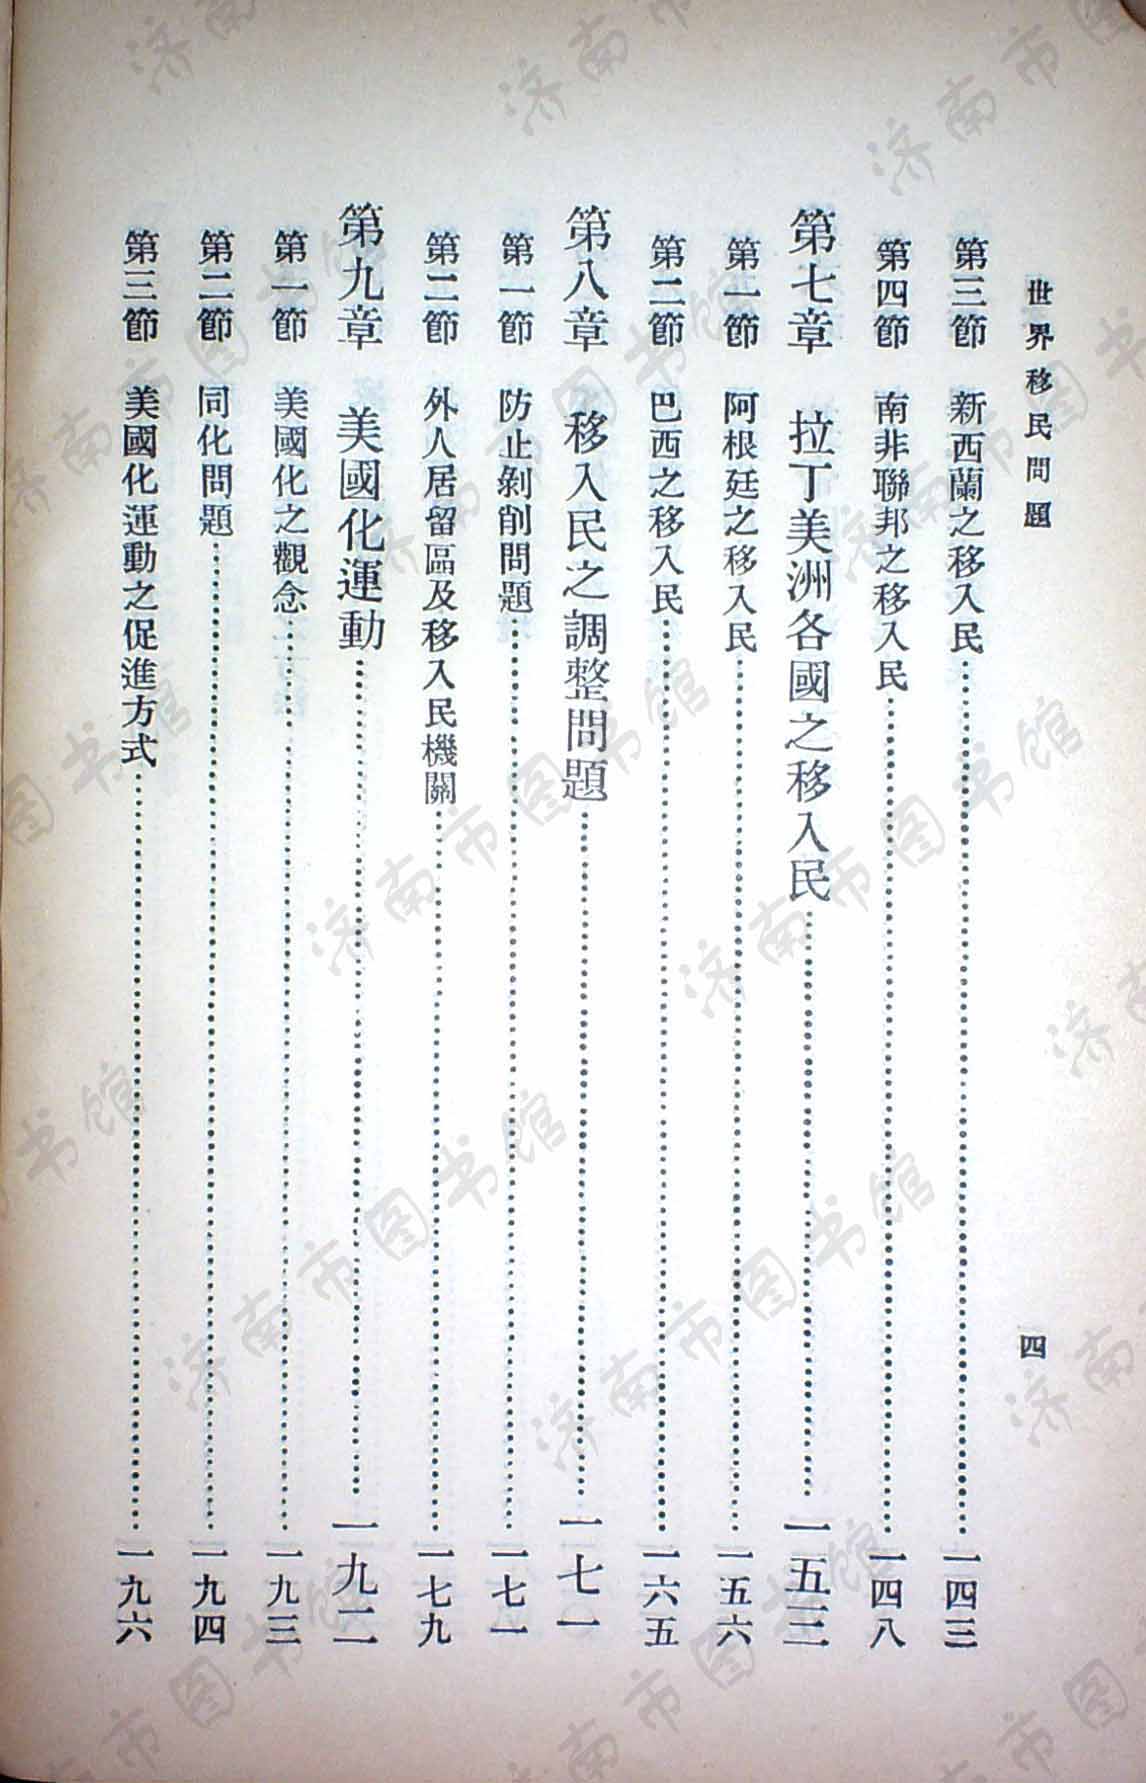 世界移民問題 四
第三節 新西蘭之移入民……一四三
第四節 南非聯邦之移入民……一四八
第七章 拉丁美洲各國之移入民……一五三
第一節 阿根廷之移入民……一五六
第二節 巴西之移入民……一六五
第八章 移入民之調整問題……一七一
第一節 防止剝削問題……一七一
第二節 外人居留區及移入民機關……一七九
第九章 美國化運動……一九二
第一節 美國化之觀念……一九三
第二節 同化問題……一九四
第三節 美國化運動之促進方式……一九六
济南市图书馆